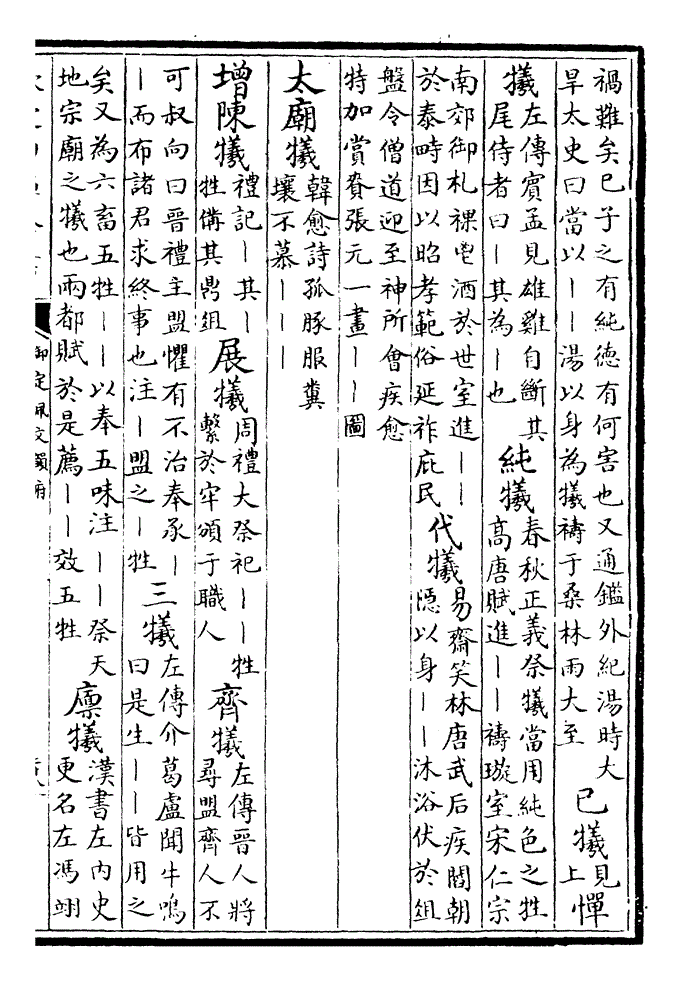 禍難矣巳子之有純德有何害也又通鑑外紀湯時大
旱太史曰當以——湯以身為犧禱于桑林雨大至
已犧
見
上
憚
犧
左傳賓孟見雄雞自斷其
尾侍者曰—其為—也
純犧
春秋正義祭犧當用純色之牲
高唐賦進——禱璇室宋仁宗
南郊御札祼鬯酒於世室進——
於泰畤因以昭孝範俗延祚庶民
代犧
易齋笑林唐武后疾閻朝
隱以身——沐浴伏於俎
盤令僧道迎至神所會疾愈
特加賞賚張元一畫——圖
太廟犧
韓愈詩孤豚服糞
壤不慕———
增陳犧
禮記—其—
牲備其鼎俎
展犧
周禮大祭祀——牲
繫於牢頒于職人
齊犧
左傳晉人將
尋盟齊人不
可叔向曰晉禮主盟懼有不治奉承—
—而布諸君求終事也注—盟之—牲
三犧
左傳介葛盧聞牛鳴
曰是生——皆用之
矣又為六畜五牲——以奉五味注——祭天
地宗廟之犧也兩都賦於是薦——效五牲
廩犧
漢書左內史
更名左馮翊
御定佩文韻府